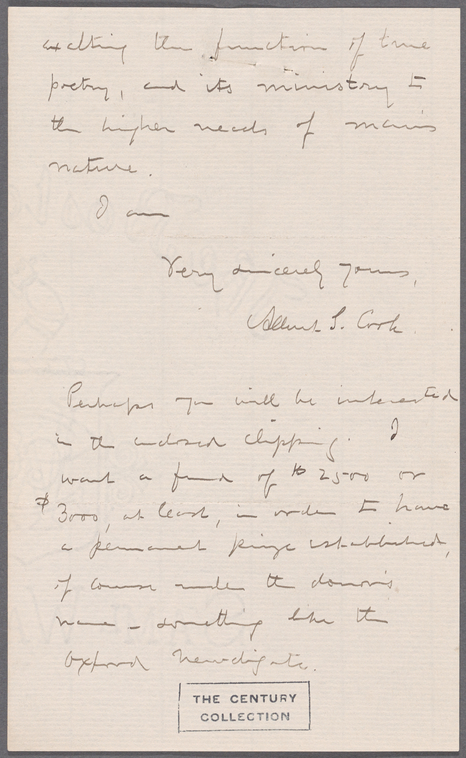 exalting the function of true
poetry, and its ministry to
the higher needs of man's
nature.
I am
Very sincerely yours,
Albert S. Cook.
Perhaps you will be interested
in the enclosed clipping. I
want a fund of $2500 or
$3000, at least, in order to have
a permanent prize established,
of course under the donor's
name – something like the
Oxford Newdigate.
THE CENTURY
COLLECTION